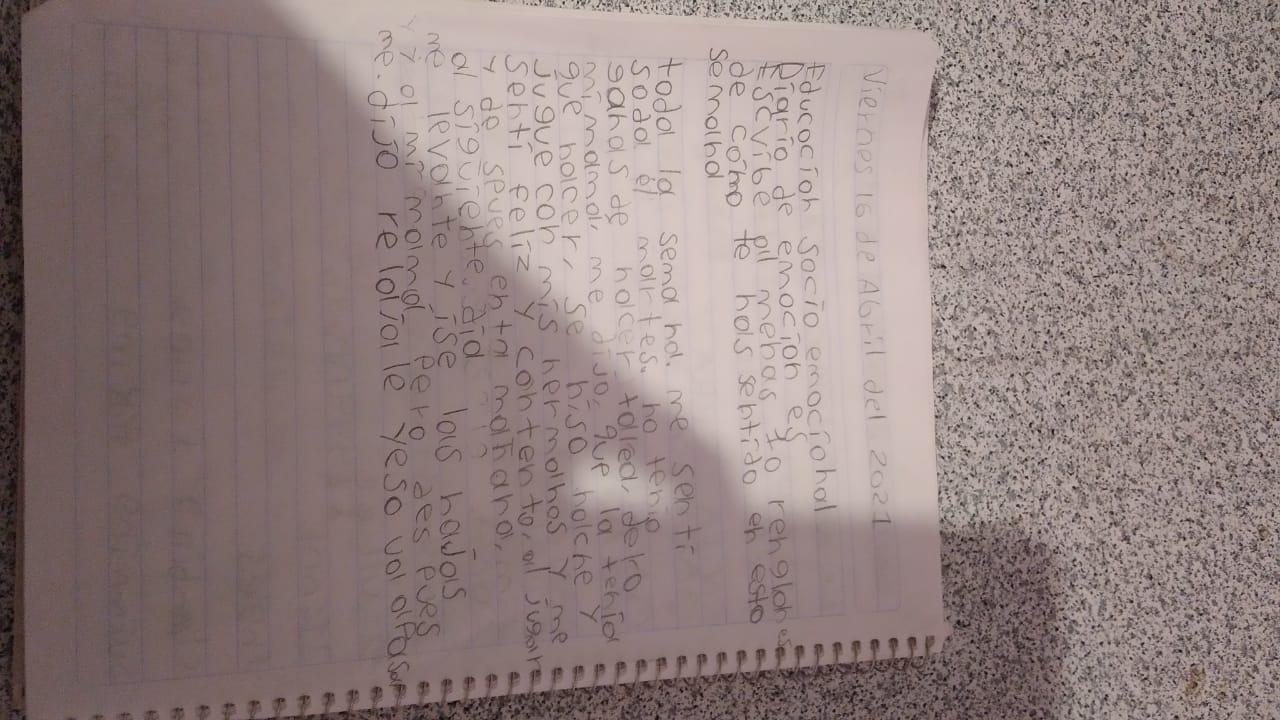 Viernes 16 de Abril del 2021
Educación socio emocional
Diario de emocion es
Escvibe al menos 10 renglones
de cómo te has sentido en esta
semana
toda la semana me sentí
el martes no tenia
ganas de hacer tarea, dero
mi mamá, me dijo, que la tenia
que hacer, se hiso noche y
Jugue con mis hermanos y me
Senti feliz y contento, al jugar
y de seves en la mañana,
al siguiente día
me levante y ise las hojas
y mi mamá pero des pues
me dijo re lajale yeso va a Pasar